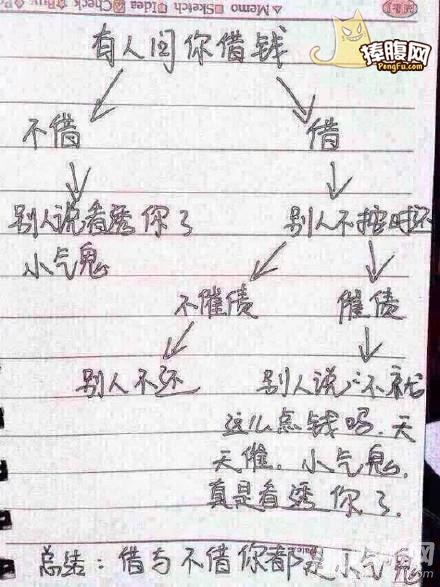 △Memo □Sketch □Idea □Check ☆Buy
捧腹网
PengFu.com
有人问你借钱
不借
借
别人说看透你了
小气鬼
别人不按时还
不催债
催债
别人不还
别人说:不就
这么点钱吗.天
天催.小气鬼.
真是看透你了.
总结:借与不借你都是小气鬼